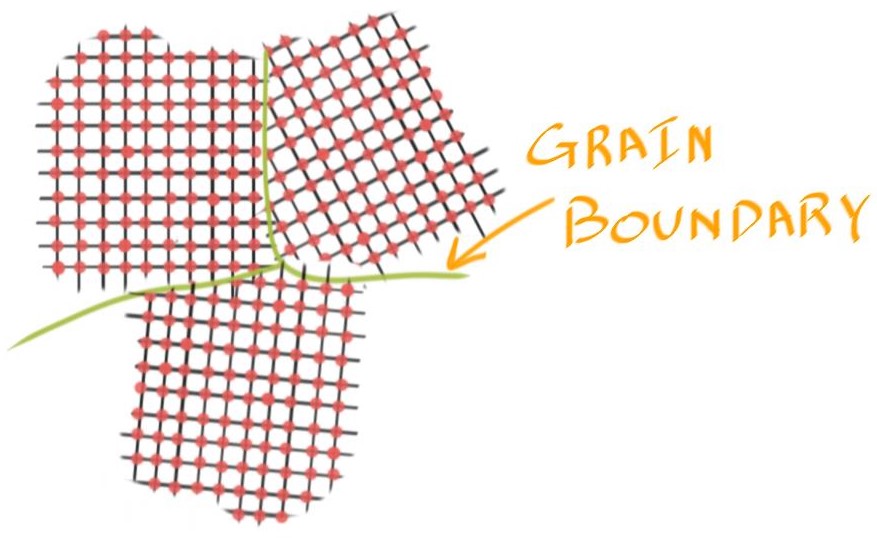 GRAIN
BOUNDARY